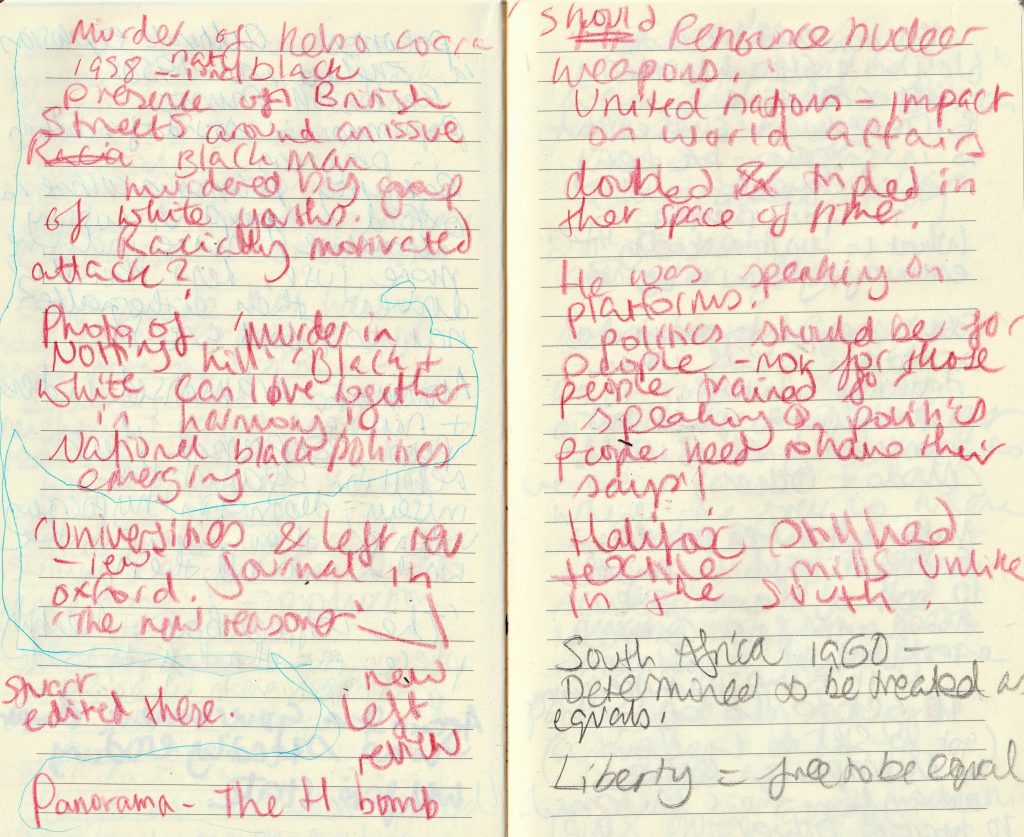 Murder of Kelso Cocra
1958 - nat black
Presence on British
Streets around an issue
Racia Black man
murdered by group
of white youths.
Racially motivated
attack?
Photo of 'murder in
Notting hill' 'Black +
white can love together
in harmony'
National black politics
emerging
'Universities & left rev
-iew' Journal in
oxford.
'The new reasoner'
new
Stuart
edited these.
left
review
Panorama - The H bomb
Should Renounce nuclear
weapons.
United nations - impact
on world affairs
doubled & tripled in
ther space of time.
He was speaking on
platforms.
politics should be for
people - not for those
people trained to
speaking politics
people need to have their
says!
Halifax still had
textile mills unlike
in the South.
South Africa 1960 -
Determined to be treated as
equals.
Liberty = free to be equal